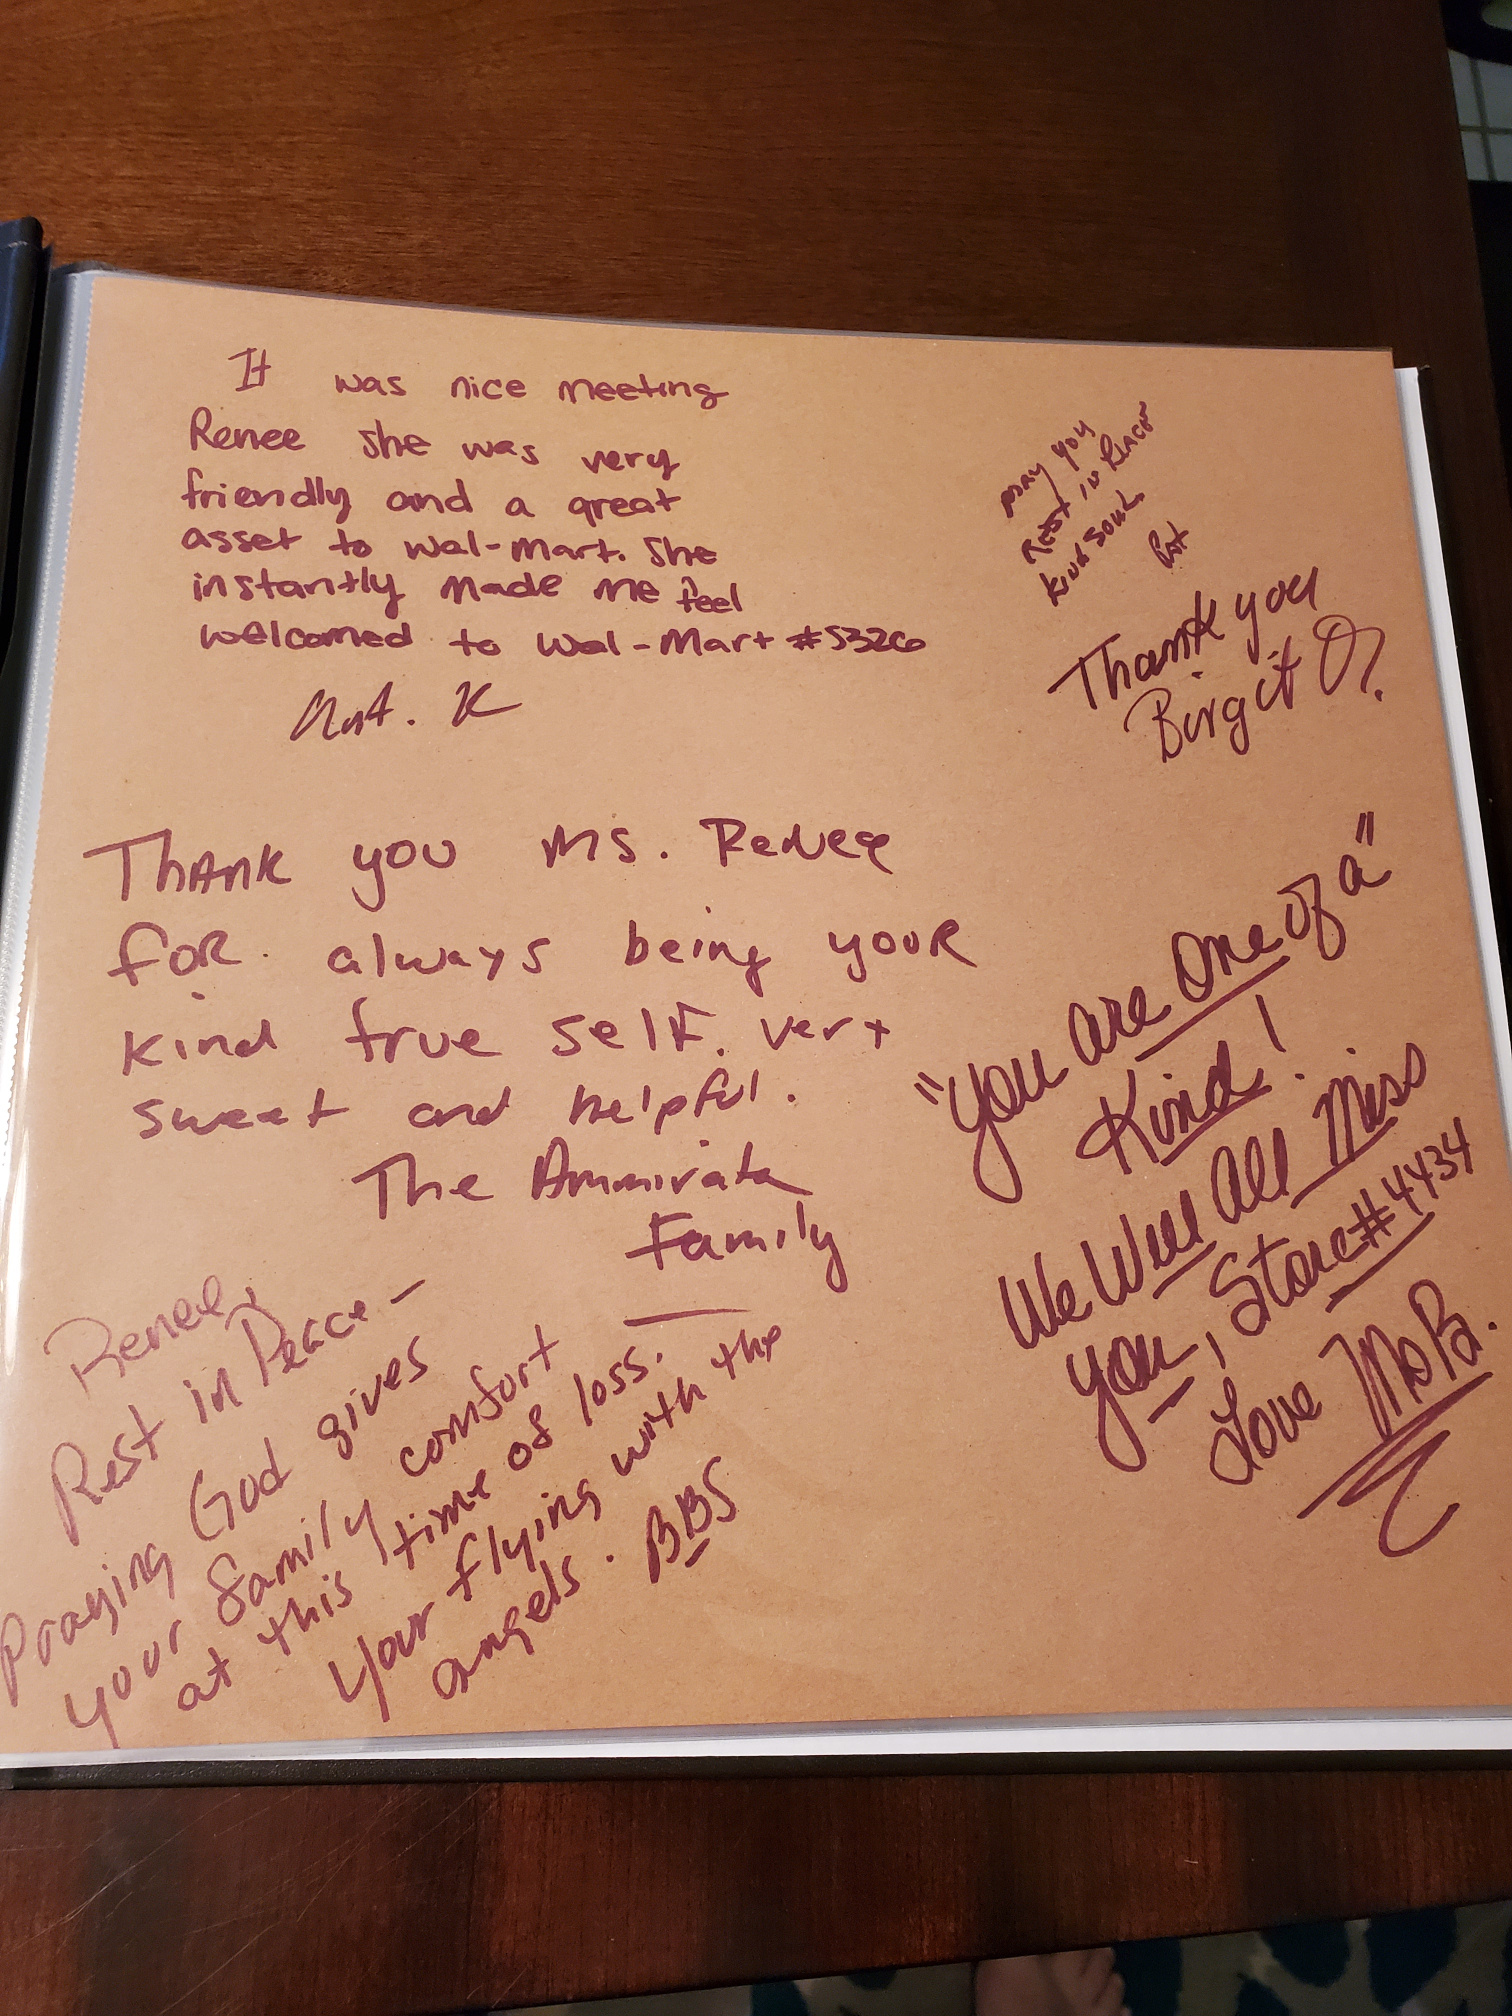 It was nice meeting
Renee she was very
friendly and a great
asset to Wal-Mart. She
instantly made me feel
welcomed to Wal-Mart #5326
K
May you
Rest in Peace
Kind soul
Pat
Thank you
Birgit O.
Thank you Ms. Renee
for always being your
kind true self. very
sweet and helpful.
The
Family
"You are One of a"
Kind!
We Will All Miss
you, Store #4434
Love Ms B.
Renee,
Rest in Peace -
Praying God gives
your family comfort
at this time of loss.
Your flying with the
angels. BBS